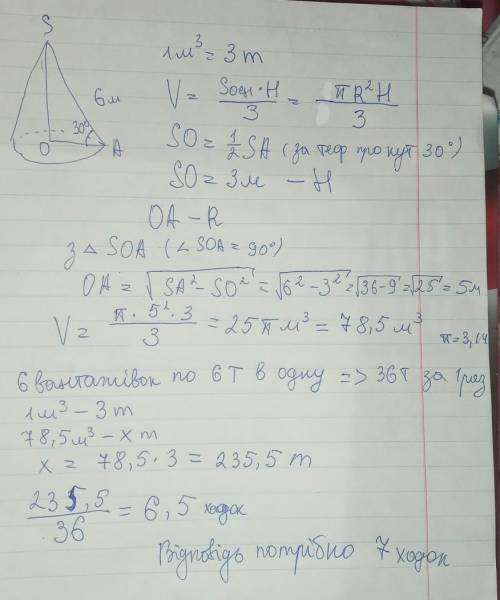 S
6м
30°
O
A
1м³ = 3т
V = Sосн·H / 3 = πR²H / 3
SO = 1/2 SA (за теор про кут 30°)
SO = 3м – H
OA – R
з △ SOA (∠SOA = 90°)
OA = √SA² – SO² = √6² – 3² = √36 – 9 = √25 = 5м
V = π · 5² · 3 / 3 = 25π м³ = 78,5 м³
π = 3,14
6 вантажівок по 6т в одну => 36т за 1 раз
1м³ – 3т
78,5м³ – х т
х = 78,5 · 3 = 235,5 т
235,5 / 36 = 6,5 ходок
Відповідь потрібно 7 ходок